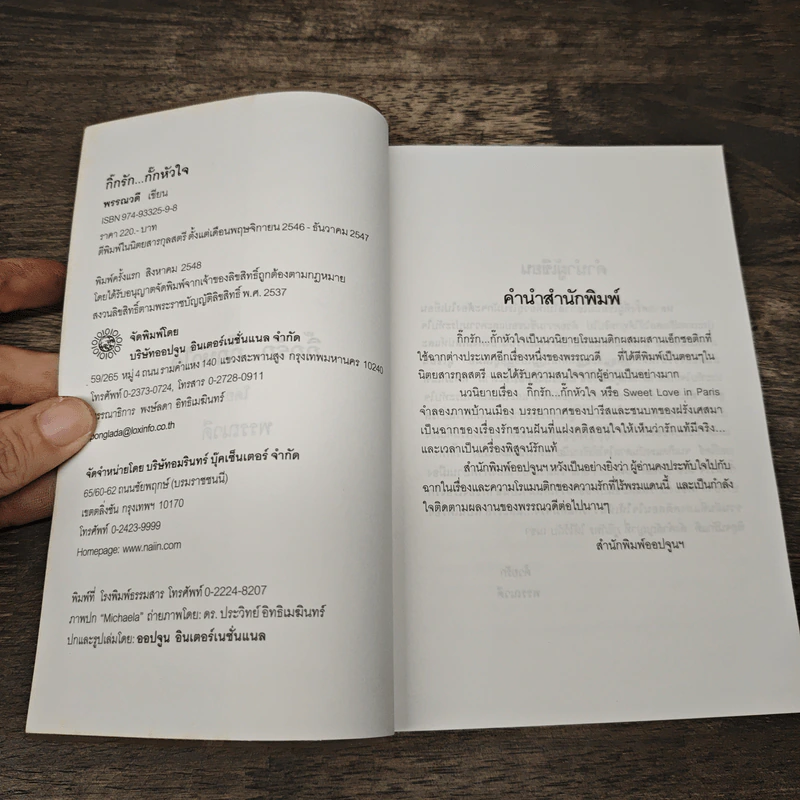 กิ๊กรัก...กั๊กหัวใจ
พรรณวดี เขียน
ISBN 974-93325-9-8
ราคา 220.- บาท
ตีพิมพ์ในนิตยสารกุลสตรี ตั้งแต่เดือนพฤษจิกายน 2546 - ธันวาคม 2547
พิมพ์ครั้งแรก สิงหาคม 2548
โดยได้รับอนุญาตจัดพิมพ์จากเจ้าของลิขสิทธิ์ถูกต้องตามกฎหมาย
สงวนลิขสิทธิ์ตามพระราชบัญญัติลิขสิทธิ์ พ.ศ. 2537
จัดพิมพ์โดย
บริษัทออปจูน อินเตอร์เนชั่นแนล จำกัด
59/265 หมู่ 4 ถนน รามคำแหง 140 แขวงสะพานสูง กรุงเทพมหานคร 10240
โทรศัพท์ 0-2373-0724, โทรสาร 0-2728-0911
บรรณาธิการ พงษ์ลดา อิทธิเมฆินทร์
ponglada@loxinfo.co.th
จัดจำหน่ายโดย บริษัทอมรินทร์ บุ๊คเซ็นเตอร์ จำกัด
65/60-62 ถนนชัยพฤกษ์ (บรมราชชนนี)
เขตตลิ่งชัน กรุงเทพฯ 10170
โทรศัพท์ 0-2423-9999
Homepage: www.naiin.com
พิมพ์ที่ โรงพิมพ์ธรรมสาร โทรศัพท์ 0-2224-8207
ภาพปก "Michaela" ถ่ายภาพโดย: ดร. ประวิทย์ อิทธิเมฆินทร์
ปกและรูปเล่มโดย: ออปจูน อินเตอร์เนชั่นแนล
คำนำสำนักพิมพ์
กิ๊กรัก...กั๊กหัวใจเป็นนวนิยายโรแมนติกผสมผสานเอ็กซอติกที่
ใช้ฉากต่างประเทศอีกเรื่องหนึ่งของพรรณวดี ที่ได้ตีพิมพ์เป็นตอนๆใน
นิตยสารกุลสตรี และได้รับความสนใจจากผู้อ่านเป็นอย่างมาก
นวนิยายเรื่อง กิ๊กรัก...กั๊กหัวใจ หรือ Sweet Love in Paris
จำลองภาพบ้านเมือง บรรยากาศของปารีสและชนบทของฝรั่งเศสมา
เป็นฉากของเรื่องรักชวนฝันที่แฝงคติสอนใจให้เห็นว่ารักแท้มีจริง...
และเวลาเป็นเครื่องพิสูจน์รักแท้
สำนักพิมพ์ออปจูนฯ หวังเป็นอย่างยิ่งว่า ผู้อ่านคงประทับใจไปกับ
ฉากในเรื่องและความโรแมนติกของความรักที่ไร้พรมแดนนี้ และเป็นกำลัง
ใจติดตามผลงานของพรรณวดีต่อไปนานๆ
สำนักพิมพ์ออปจูนฯ